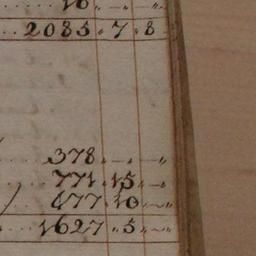 16 . — . — „
2085 . 7 . 8
378 . — . — „
771 . 15 . — „
477 . 10 . — „
1627 . 5 . — „